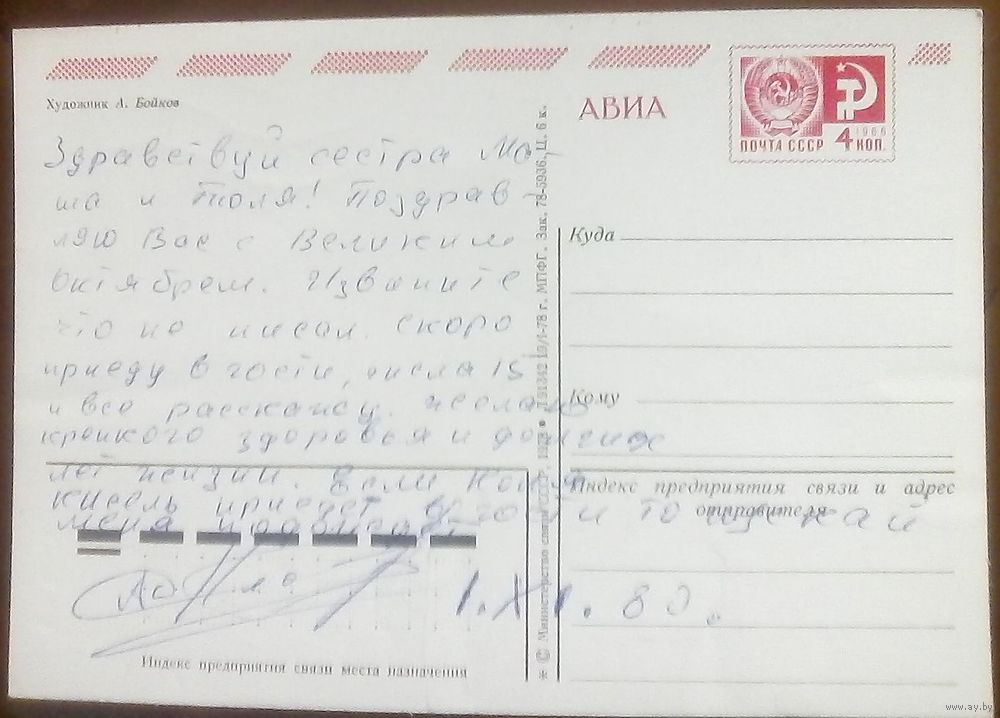 Художник А. Бойков
АВИА
1966
ПОЧТА СССР 4 КОП.
Здравствуй сестра Ма-
ша и Толя! Поздрав-
ляю Вас с Великим
Октябрем. Извените
что не писал. Скоро
приеду в гости, числа 15
и все расскажу. Желаю
крепкого здоровья и долгих
лет жизни. Если
кисель приедет в гости то
меня
1.XI.80.
Куда
Кому
Индекс предприятия связи и адрес
отправителя
Индекс предприятия связи места назначения
* © Министерство связи СССР, 1978 • 191342 19/I-78 г. МПФГ. Зак. 78-5936. Ц. 6 к.
www.ay.by